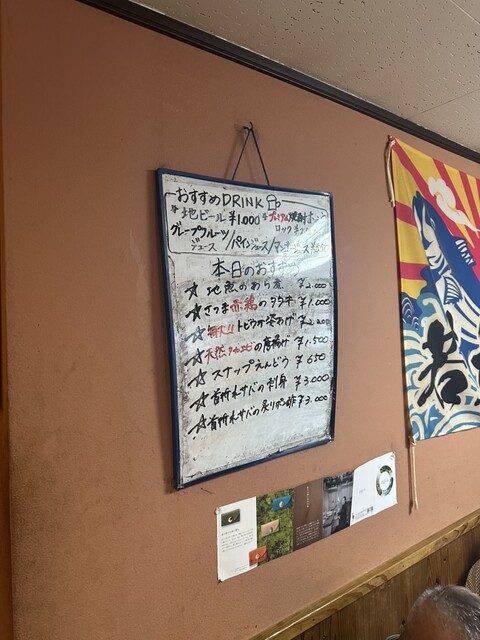 おすすめDRINK
地ビール ¥1.000 プレミアム焼酎
ロック
グレープフルーツ/パインジュース/マンゴージュース
ジュース
本日のおすすめ
☆ 地魚のあら煮 ¥2.000
☆ さつま赤鶏のタタキ ¥1.000
☆ トビウオ姿あげ ¥2.200
☆ 天然 の唐揚げ ¥1.500
☆ スナップえんどう ¥650
☆ 首折れサバの刺身 ¥3.000
☆ 首折れサバの炙りポン酢 ¥3.000